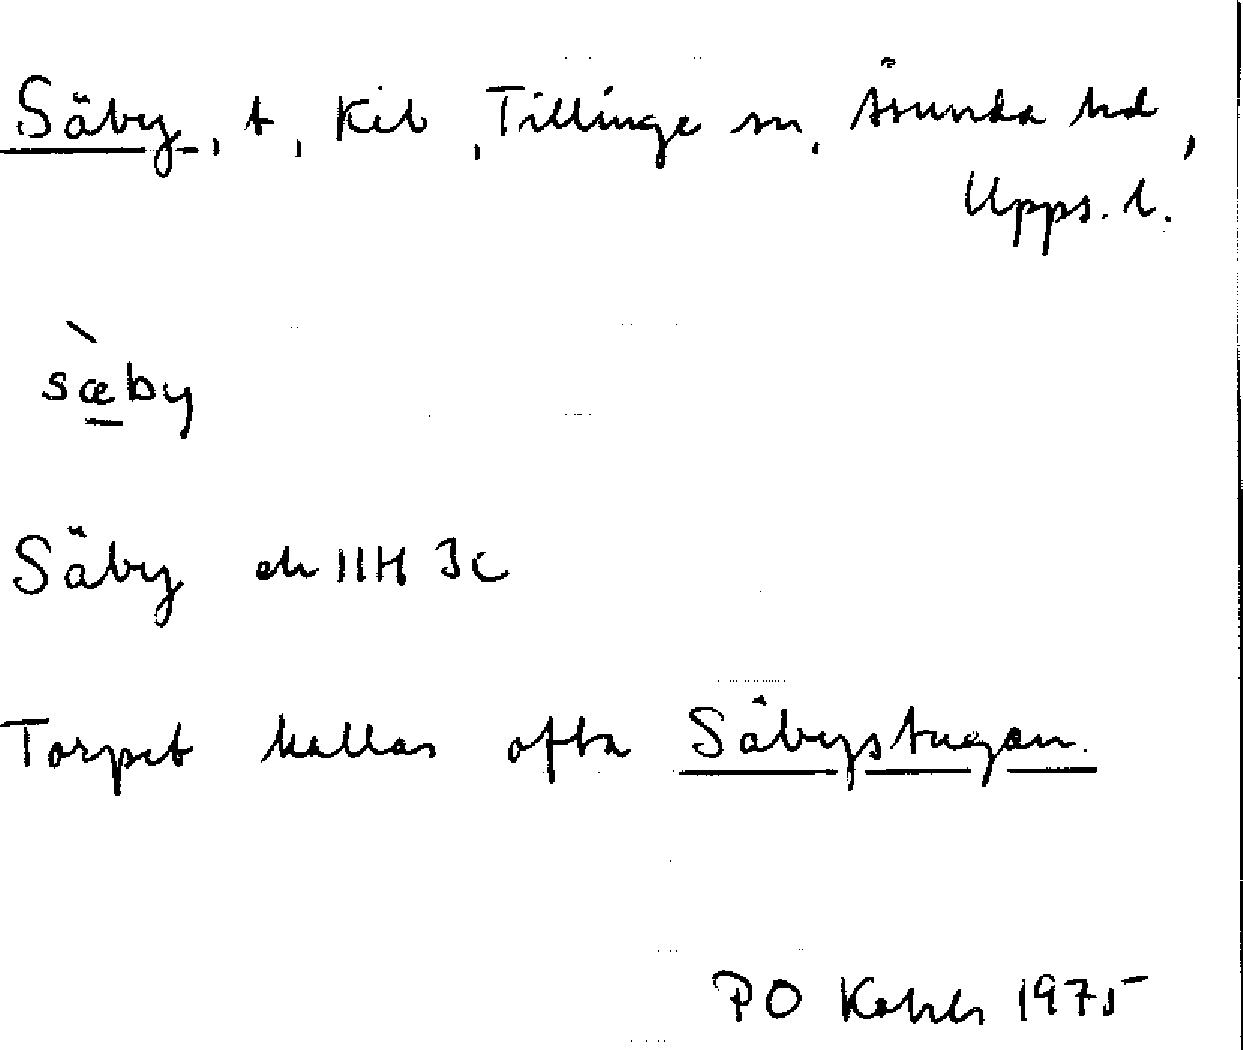 Säby, t, Kil, Tillinge sn, Åsunda hd,
Upps. l.
sæ̱̀by
Säby ek 11H 3c
Torpet kallas ofta Säbystugan.
PO 1975